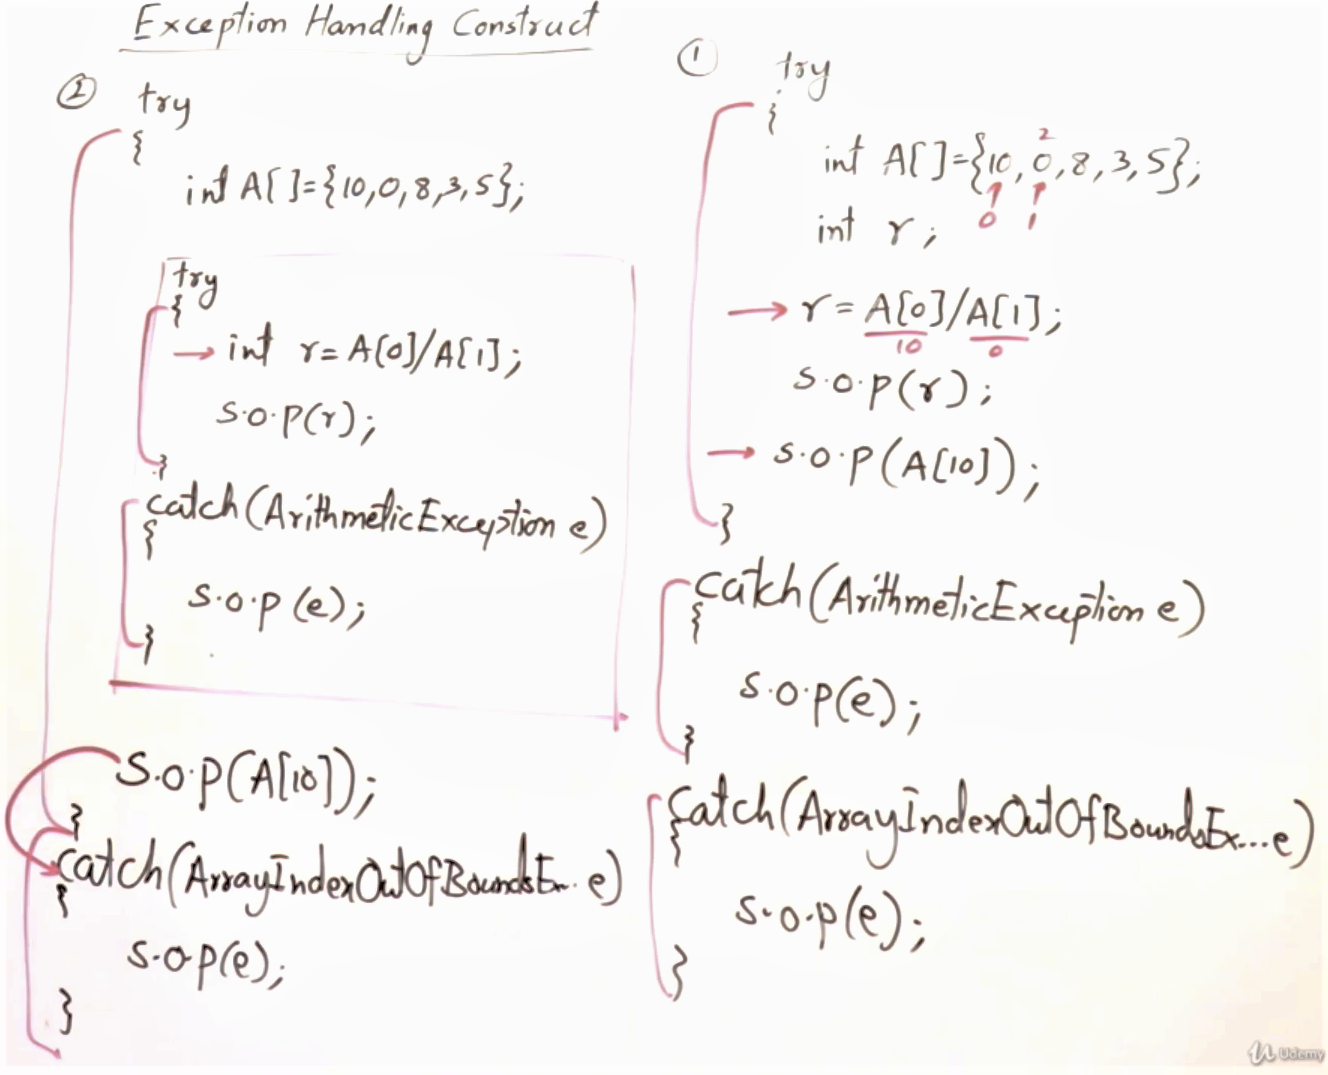 Exception Handling Construct
② try
{
int A[]={10,0,8,3,5};
try
{
int r=A[0]/A[1];
S.O.P(r);
}
catch(ArithmeticException e)
{
S.O.P(e);
}
S.O.P(A[10]);
}
catch(ArrayIndexOutOfBoundsEx... e)
{
S.O.P(e);
}
① try
{
2
int A[]={10,0,8,3,5};
0 1
int r;
r=A[0]/A[1];
10 0
S.O.P(r);
S.O.P(A[10]);
}
catch(ArithmeticException e)
{
S.O.P(e);
}
catch(ArrayIndexOutOfBoundsEx... e)
{
S.O.P(e);
}
Udemy